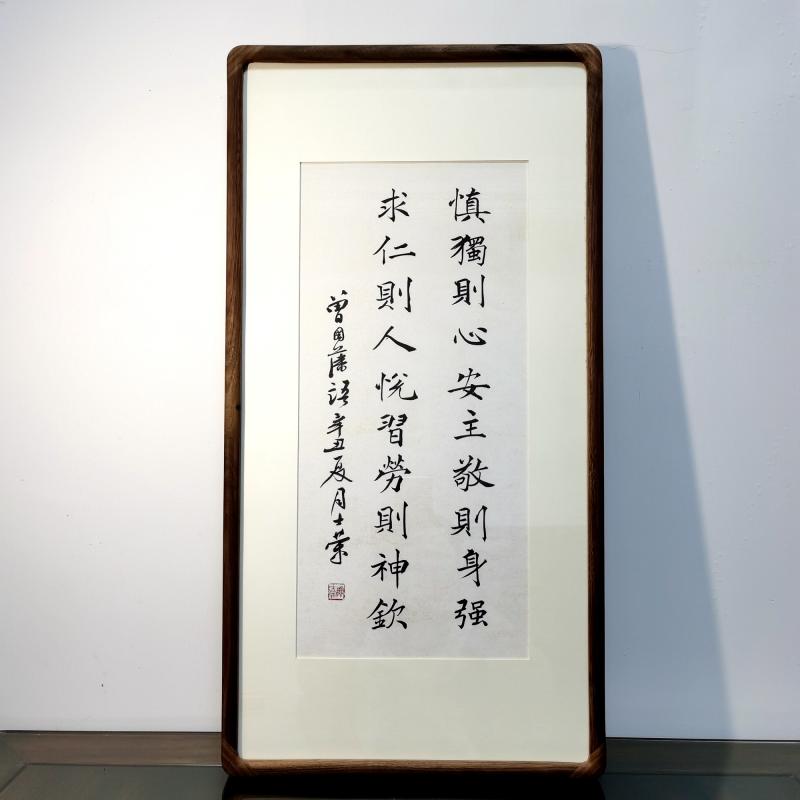 慎獨則心安主敬則身强
求仁則人悅習勞則神欽
曾国藩語辛丑夏月士榮